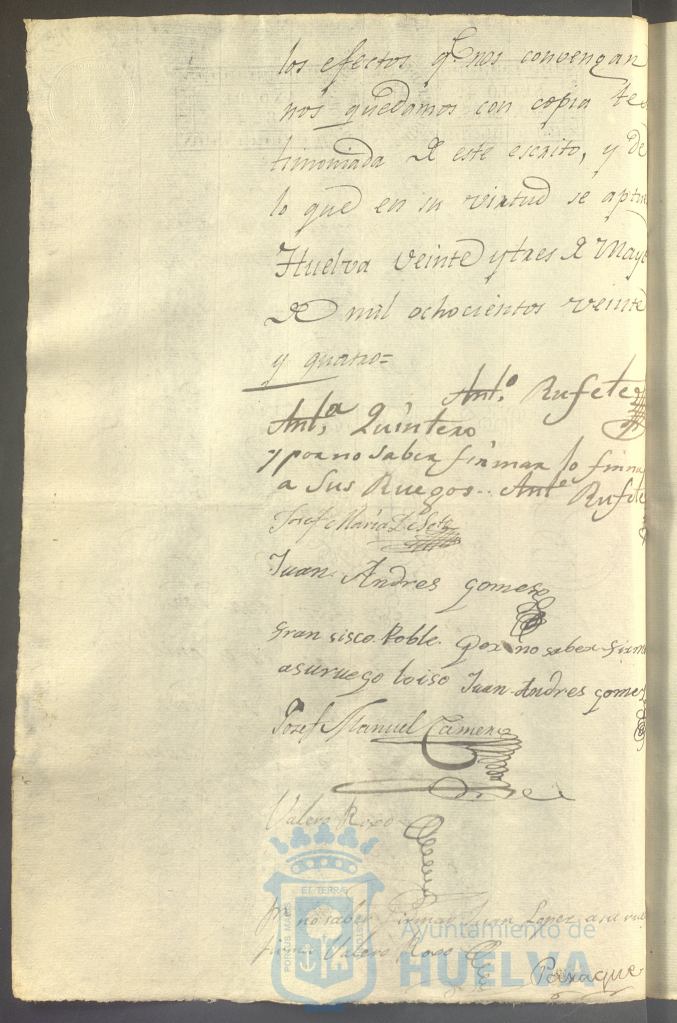 los efectos q.e nos convengan
nos quedamos con copia tes
timoniada de este escrito, y de
lo que en su virtud se
Huelva veinte ytres de Mayo
de mil ochocientos veinte
y quatro=
Ant.o Rufete
Ant.a Quintero
y por no saber firmar lo firma
a Sus Ruegos.. Ant.o Rufete
Josef Maria de Soto
Juan Andres gomes
fran sisco Roble. por no saber firm
asuruego loiso Juan Andres gomes
Josef Manuel
Valero Roxo
Por no saber Firmar Juan Lopez a su rue
firma Valero Roxo
PORTUS MARIS
ET TERRÆ
CUSTODIA
Ayuntamiento de
HUELVA